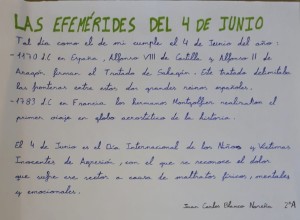 LAS EFEMÉRIDES DEL 4 DE JUNIO
Tal día como el de mi cumple el 4 de Junio del año:
-1170 d.C en España, Alfonso VIII de Castilla y Alfonso II de
Aragón firman el Tratado de Sahagún. Este tratado delimitaba
las fronteras entre estos dos grandes reinos españoles.
-1783 d.C en Francia los hermanos Montgolfier realizaron el
primer viaje en globo aerostático de la historia.
El 4 de Junio es el Día Internacional de los Niños Víctimas
Inocentes de Agresión, con el que se reconoce el dolor
que sufre ese sector a causa de maltratos físicos, mentales
y emocionales.
Juan Carlos Blanco 2ºA